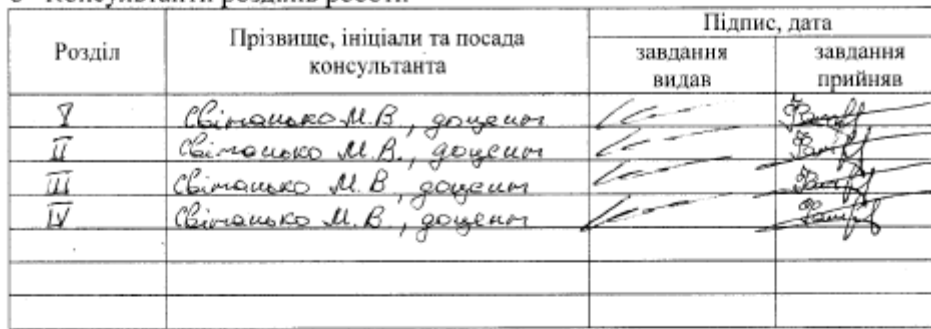 Консультанти розділів роботи
Розділ
Прізвище, ініціали та посада консультанта
Підпис, дата
завдання видав
завдання прийняв
I Світанько М.В., доцент
II Світанько М.В., доцент
III Світанько М.В., доцент
IV Світанько М.В., доцент